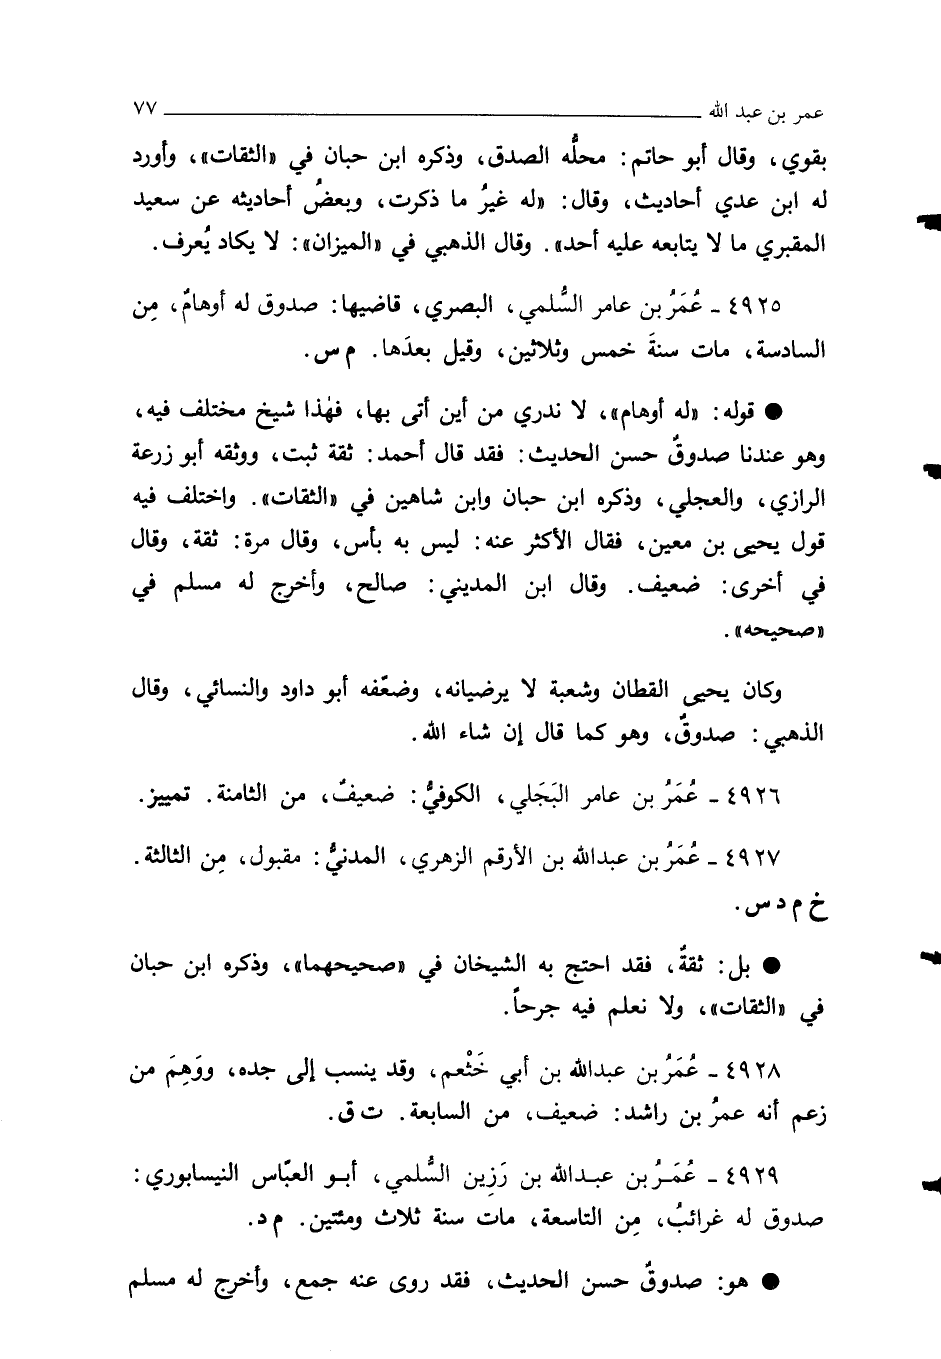 عمر بن عبد الله ٧٧
بقوي، وقال أبو حاتم: محلُّه الصدق، وذكره ابن حبان في «الثقات»، وأورد
له ابن عدي أحاديث، وقال: «له غيرُ ما ذكرت، وبعضُ أحاديثه عن سعيد
المقبري ما لا يتابعه عليه أحد». وقال الذهبي في «الميزان»: لا يكاد يُعرف.
٤٩٢٥ ـ عُمَرُ بن عامر السُّلمي، البصري، قاضيها: صدوق له أوهامٌ، مِن
السادسة، مات سنةَ خمس وثلاثين، وقيل بعدَها. م س.
● قوله: «له أوهام»، لا ندري من أين أتى بها، فهٰذا شيخ مختلف فيه،
وهو عندنا صدوقٌ حسن الحديث: فقد قال أحمد: ثقة ثبت، ووثقه أبو زرعة
الرازي، والعجلي، وذكره ابن حبان وابن شاهين في «الثقات». واختلف فيه
قول يحيى بن معين، فقال الأكثر عنه: ليس به بأس، وقال مرة: ثقة، وقال
في أخرى: ضعيف. وقال ابن المديني: صالح، وأخرج له مسلم في
«صحيحه».
وكان يحيى القطان وشعبة لا يرضيانه، وضعّفه أبو داود والنسائي، وقال
الذهبي: صدوقٌ، وهو كما قال إن شاء الله.
٤٩٢٦ ـ عُمَرُ بن عامر البَجَلي، الكوفيُّ: ضعيفٌ، من الثامنة. تمييز.
٤٩٢٧ ـ عُمَرُ بن عبدالله بن الأرقم الزهري، المدنيُّ: مقبول، مِن الثالثة.
خ م د س.
● بل: ثقةٌ، فقد احتج به الشيخان في «صحيحهما»، وذكره ابن حبان
في «الثقات»، ولا نعلم فيه جرحاً.
٤٩٢٨ ـ عُمَرُ بن عبدالله بن أبي خَثْعم، وقد ينسب إلى جده، ووَهِمَ من
زعم أنه عمرُ بن راشد: ضعيف، من السابعة. ت ق.
٤٩٢٩ ـ عُمَرُ بن عبدالله بن رَزِين السُّلمي، أبو العبّاس النيسابوري:
صدوق له غرائبُ، مِن التاسعة، مات سنة ثلاث ومئتين. م د.
● هو: صدوقٌ حسن الحديث، فقد روى عنه جمع، وأخرج له مسلم